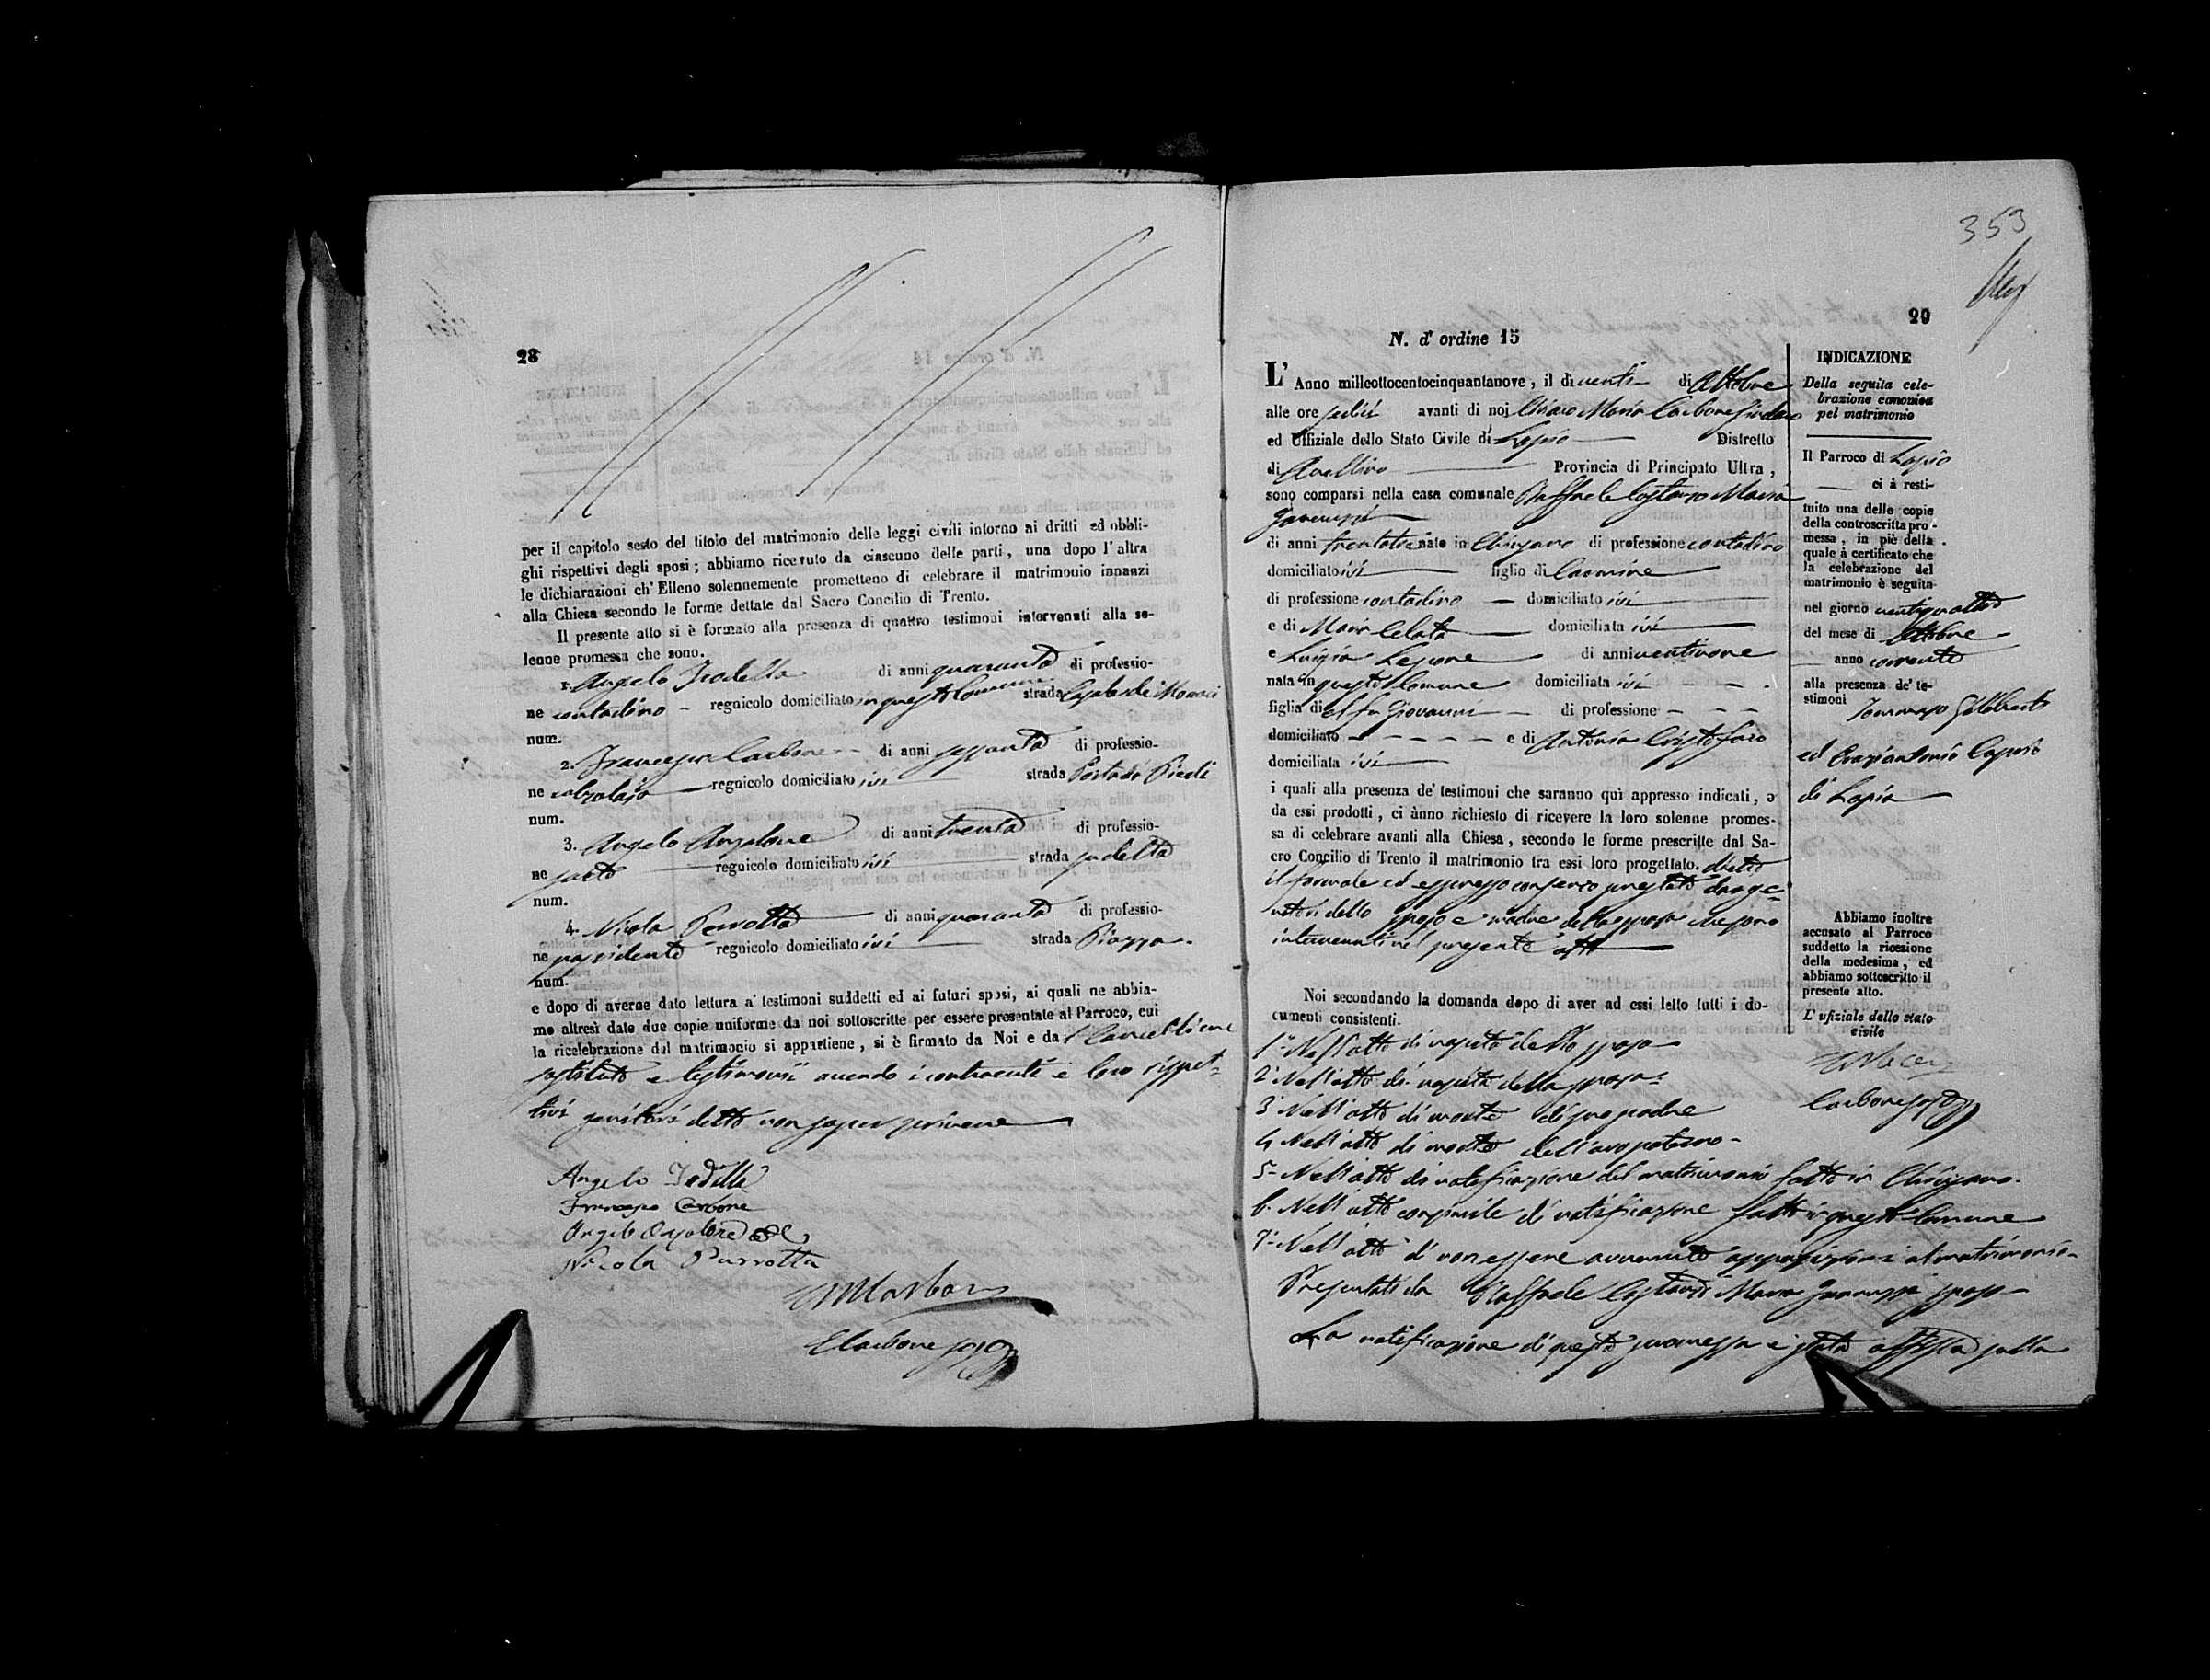 28
per il capitolo sesto del titolo del matrimonio delle leggi civili intorno ai dritti ed obbli-
ghi rispettivi degli sposi ; abbiamo ricevuto da ciascuno delle parti , una dopo l' altra
le dichiarazioni ch' Elleno solennemente prometteno di celebrare il matrimonio innanzi
alla Chiesa secondo le forme dettate dal Sacro Concilio di Trento.
Il presente atto si è formato alla presenza di quattro testimoni intervenuti alla so-
lenne promessa che sono.
1. Angelo di anni quaranta di professio-
ne contadino - regnicolo domiciliato in questo Comune strada
num.
2. Francesco Carbone di anni sessanta di professio-
ne calzolajo regnicolo domiciliato ivi strada
num.
3. Angelo Anzalone di anni trenta di professio-
ne sarto regnicolo domiciliato ivi strada
num.
4. Nicola Perrotta di anni quaranta di professio-
ne possidente regnicolo domiciliato ivi strada Piazza.
num.
e dopo di averne dato lettura a' testimoni suddetti ed ai futuri sposi, ai quali ne abbia-
mo altresì date due copie uniforme da noi sottoscritte per essere presentate al Parroco, cui
la ricelebrazione del matrimonio si appartiene , si è firmato da Noi e da l Cancelliere
sostituto e testimonii avendo i contraenti e loro rispet-
tivi genitori detto non saper scrivere
Angelo
Francesco Carbone
Nicola Perrotta
Carbone
353
29
N. d' ordine 15
L' Anno milleottocentocinquantanove , il dì venti di Ottobre
alle ore sedici avanti di noi Maria Carbone Sindaco
ed Uffiziale dello Stato Civile di Lapio Distretto
di Avellino Provincia di Principato Ultra ,
sono comparsi nella casa comunale Raffaele Costanzo Maria
di anni trentatre nato in Chiusano di professione contadino
domiciliato ivi figlio di Carmine
di professione contadino domiciliato ivi
e di Maria domiciliata ivi
e Luigia Lepore di anni ventinove
nata in questo Comune domiciliata ivi
figlia di el fu Giovanni di professione
domiciliato e di Antonia Cristofaro
domiciliata ivi
i quali alla presenza de' testimoni che saranno quì appresso indicati, e
da essi prodotti , ci ànno richiesto di ricevere la loro solenne promes-
sa di celebrare avanti alla Chiesa, secondo le forme prescritte dal Sa-
cro Concilio di Trento il matrimonio tra essi loro progettato.
il formale ed espresso consenso prestato da' ge-
nitori dello sposo e madre della sposa che sono
intervenuti nel presente atto
Noi secondando la domanda dopo di aver ad essi letto tutti i do-
cumenti consistenti.
1° Nell'atto di nascita dello sposo
2° Nell'atto di nascita della sposa
3° Nell'atto di morte di suo padre
4 Nell'atto di morte dell'avo paterno
5° Nell'atto di notificazione del matrimonio fatto in Chiusano.
6. Nell'atto consimile di notificazione fatto in questo Comune
7° Nell'atto di non essere avvenuto opposizioni al matrimonio
Presentati da Raffaele Costanzo Maria sposo
La notificazione di questa promessa è stata affissa sulla
INDICAZIONE
Della seguita cele-
brazione canonica
pel matrimonio
Il Parroco di Lapio
ci à resti-
tuito una delle copie
della controscritta pro-
messa , in piè della
quale à certificato che
la celebrazione del
matrimonio è seguita
nel giorno ventiquattro
del mese di Ottobre
anno corrente
alla presenza de' te-
stimoni Tommaso Giliberti
ed
di Lapio
Abbiamo inoltre
accusato al Parroco
suddetto la ricezione
della medesima , ed
abbiamo sottoscritto il
presente atto.
L' ufiziale dello stato
civile
Carbone